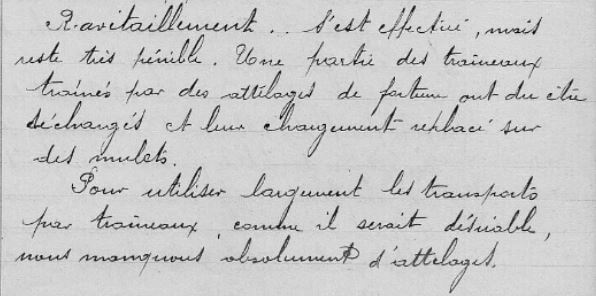 Ravitaillement .. s'est effectué, mais
reste très pénible. Une partie des traineaux
traînés par des attelages de fortune ont du être
déchargés et leur chargement replacé sur
des mulets.
Pour utiliser largement les transports
par traineaux, comme il serait désirable,
nous manquons absolument d'attelages.